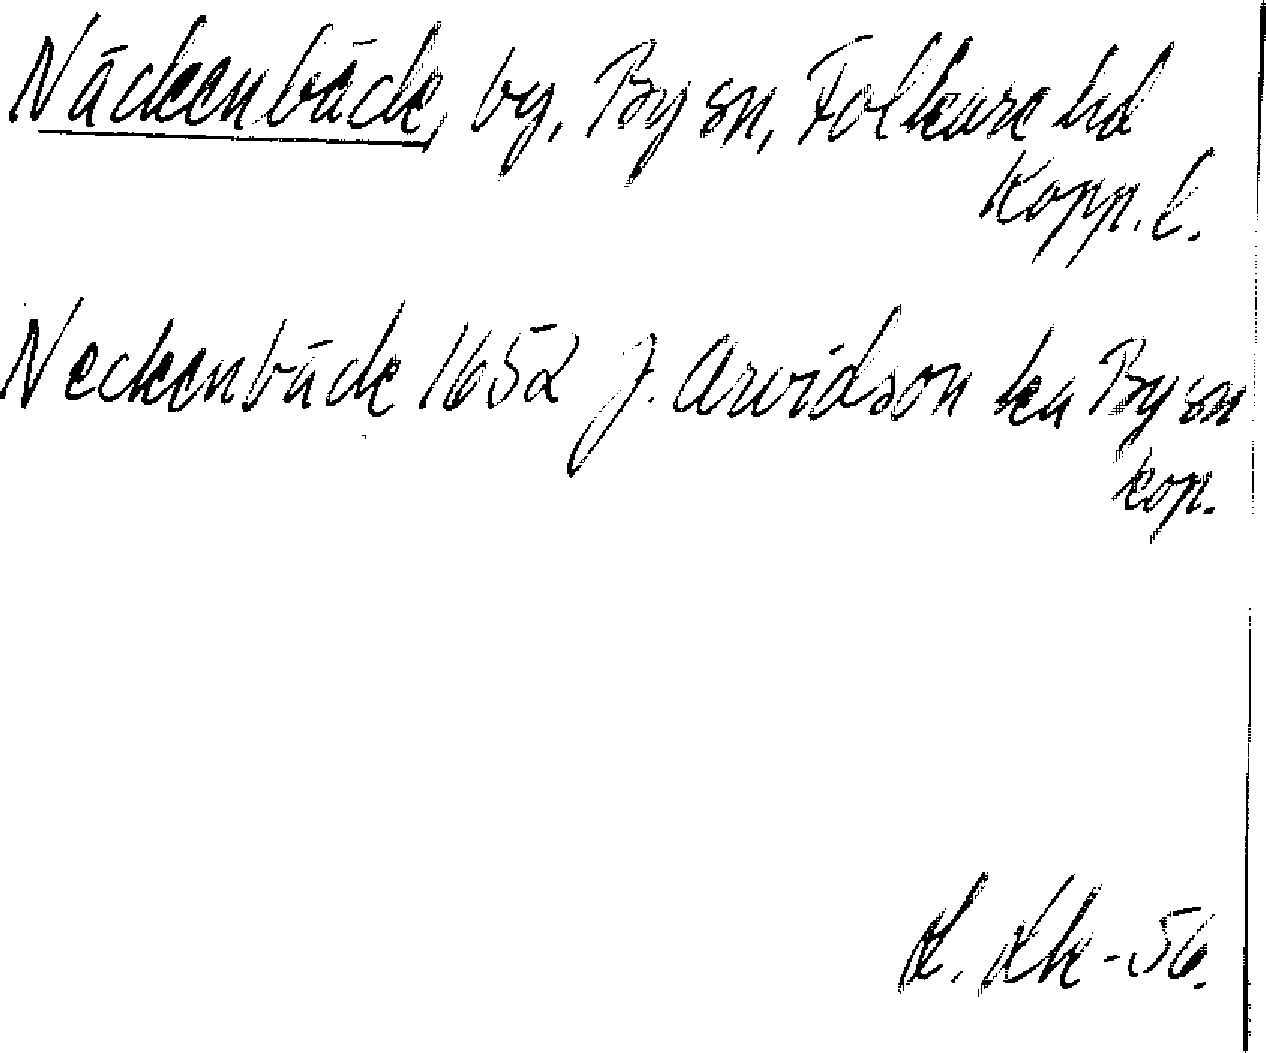 Näckenbäck, by, By sn, Folkare hd
Kopp. l.
Neckenbäck 1652 J. Arvidson ka By sn
kop.
K. Kk-56.